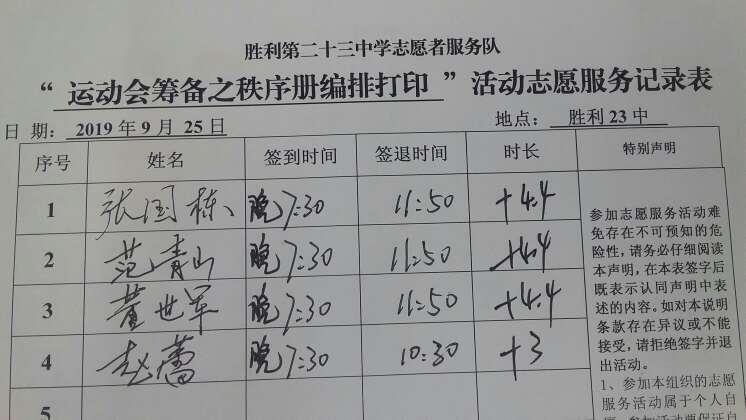 胜利第二十三中学志愿者服务队
“ 运动会筹备之秩序册编排打印 ”活动志愿服务记录表
日 期: 2019 年 9 月 25 日 地点: 胜利 23 中
序号 姓名 签到时间 签退时间 时长 特别声明
1 张国栋 晚7:30 11:50 +4.4
2 范青山 晚7:30 11:50 +4.4
3 董世军 晚7:30 11:50 +4.4
4 赵蕾 晚7:30 10:30 +3
5
参加志愿服务活动难
免存在不可预知的危
险性,请务必仔细阅读
本声明,在本表签字后
既表示认同声明中表
述的内容。如对本说明
条款存在异议或不能
接受,请拒绝签字并退
出活动。
1、参加本组织的志愿
服务活动属于个人自